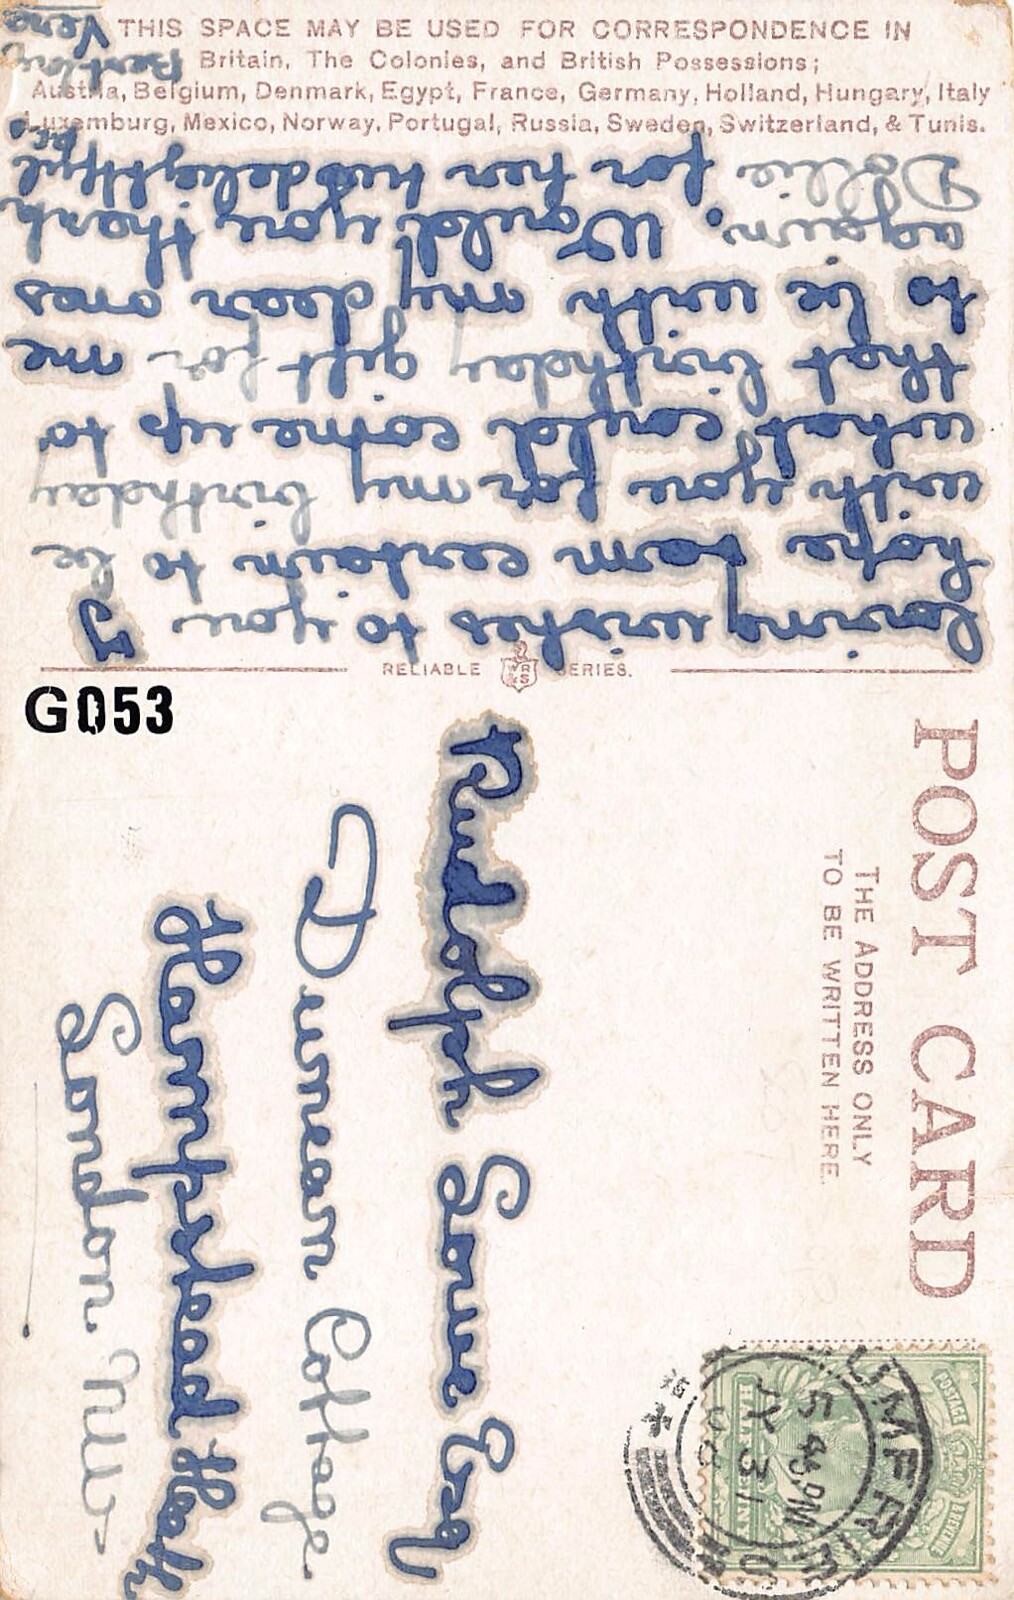 THIS SPACE MAY BE USED FOR CORRESPONDENCE IN
Britain, The Colonies, and British Possessions;
Austria, Belgium, Denmark, Egypt, France, Germany, Holland, Hungary, Italy
Luxemburg, Mexico, Norway, Portugal, Russia, Sweden, Switzerland, & Tunis.
Loving wishes to you I
hope I am certain to be
with you for my birthday
what could come up to
that birthday gift for me
to be with my dear ones
again. Would you thank
Dollie for her delightful
Vera
RELIABLE WR&S SERIES.
G053
POST CARD
THE ADDRESS ONLY
TO BE WRITTEN HERE.
Rudolph Esq
Duncan Cottage
Hampstead Heath
London NW
POSTAGE
REVENUE
DUMFRIES
5 45PM
JY 31